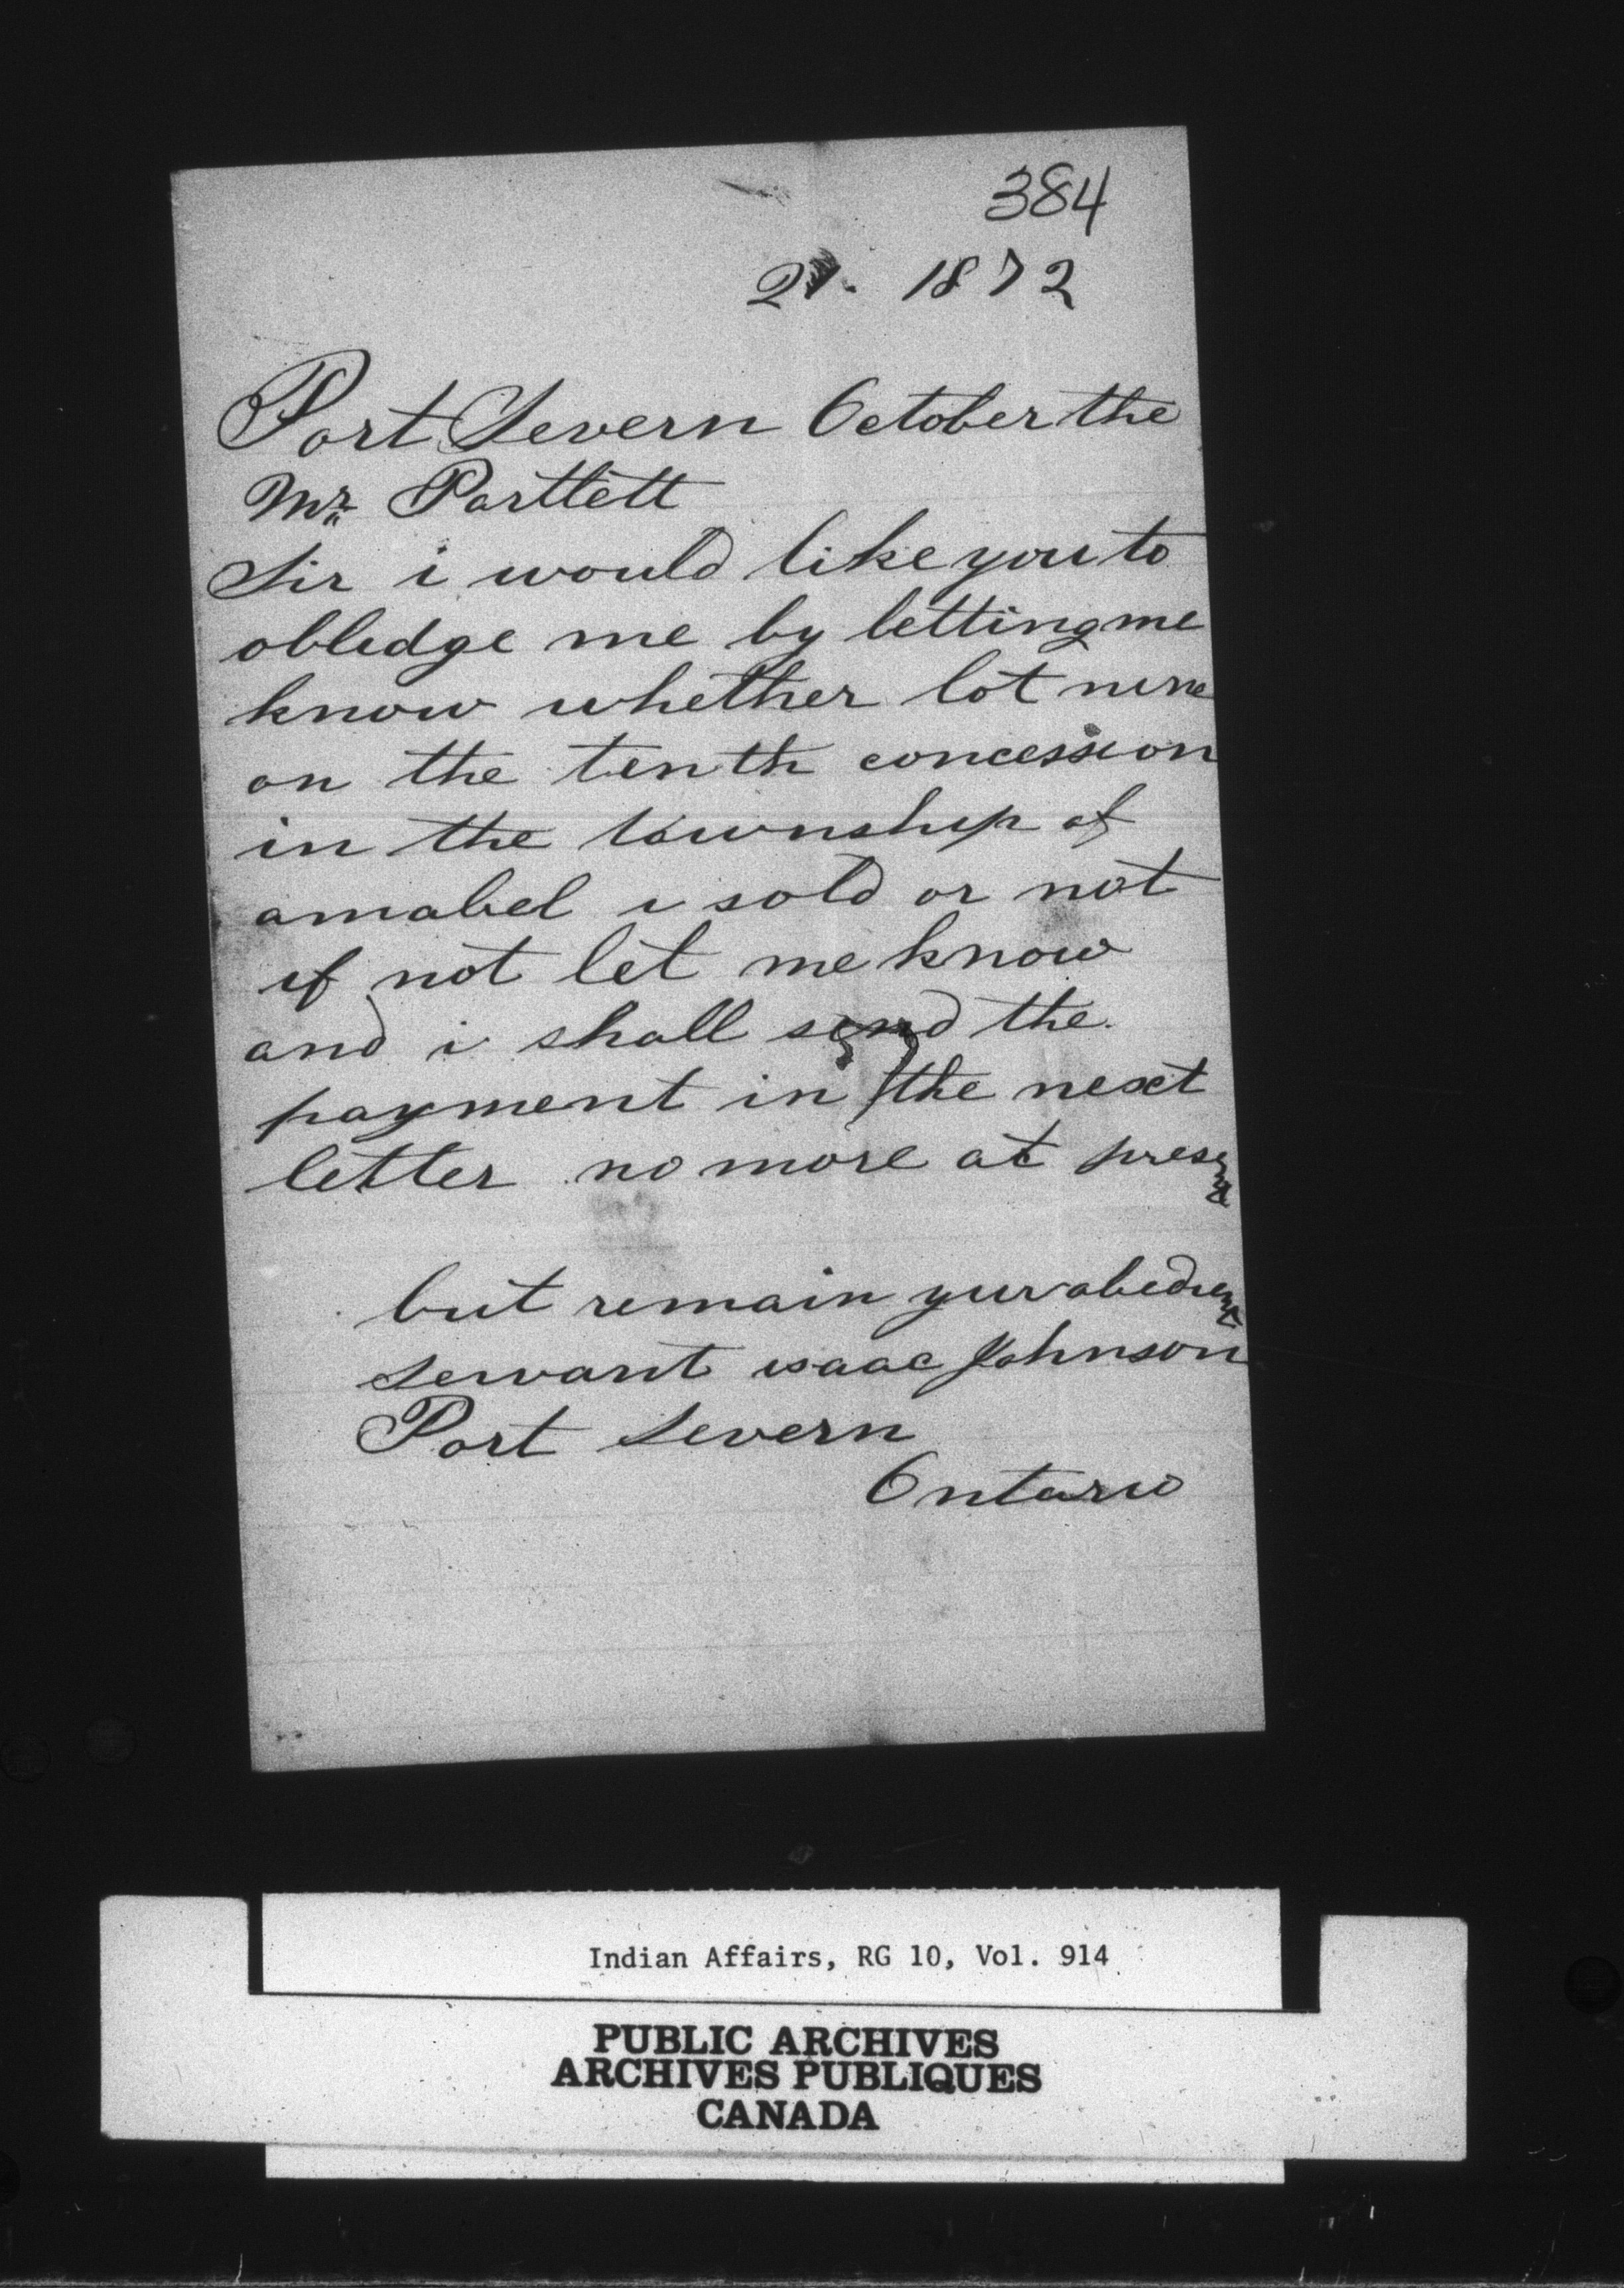 384
21. 1872
Port Severn October the
Mr. Partlett
Sir i would like you to
obledge me by letting me
know whether lot nine
on the tenth concession
in the township of
amabel i sold or not
if not let me know
and i shall send the
payment in the next
letter no more at present
but remain yur obedient
servant isaac Johnson
Port Severn
Ontario
Indian Affairs, RG 10, Vol. 914
PUBLIC ARCHIVES
ARCHIVES PUBLIQUES
CANADA